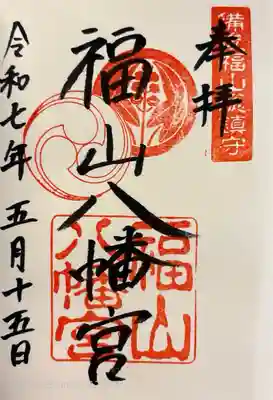 備後福山総鎮守
奉拝
福山八幡宮
福山八幡宮
令和七年 五月十五日